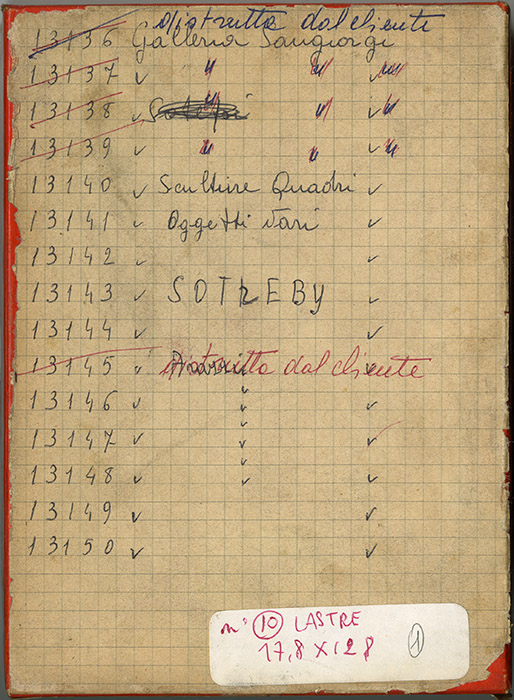 distrutta dal cliente
13136 Galleria Sangiorgi
13137 ✓ " " ✓ "
13138 ✓ " " ✓ "
13139 ✓ " " ✓ "
13140 ✓ Sculture Quadri ✓
13141 ✓ Oggetti Vari ✓
13142 ✓ ✓
13143 ✓ SOTHEBY ✓
13144 ✓ ✓
13145 ✓ distrutta dal cliente ✓
13146 ✓ ✓ ✓
13147 ✓ ✓ ✓
13148 ✓ ✓ ✓
13149 ✓ ✓
13150 ✓ ✓
n° 10 LASTRE
17,8 X 12 8 1